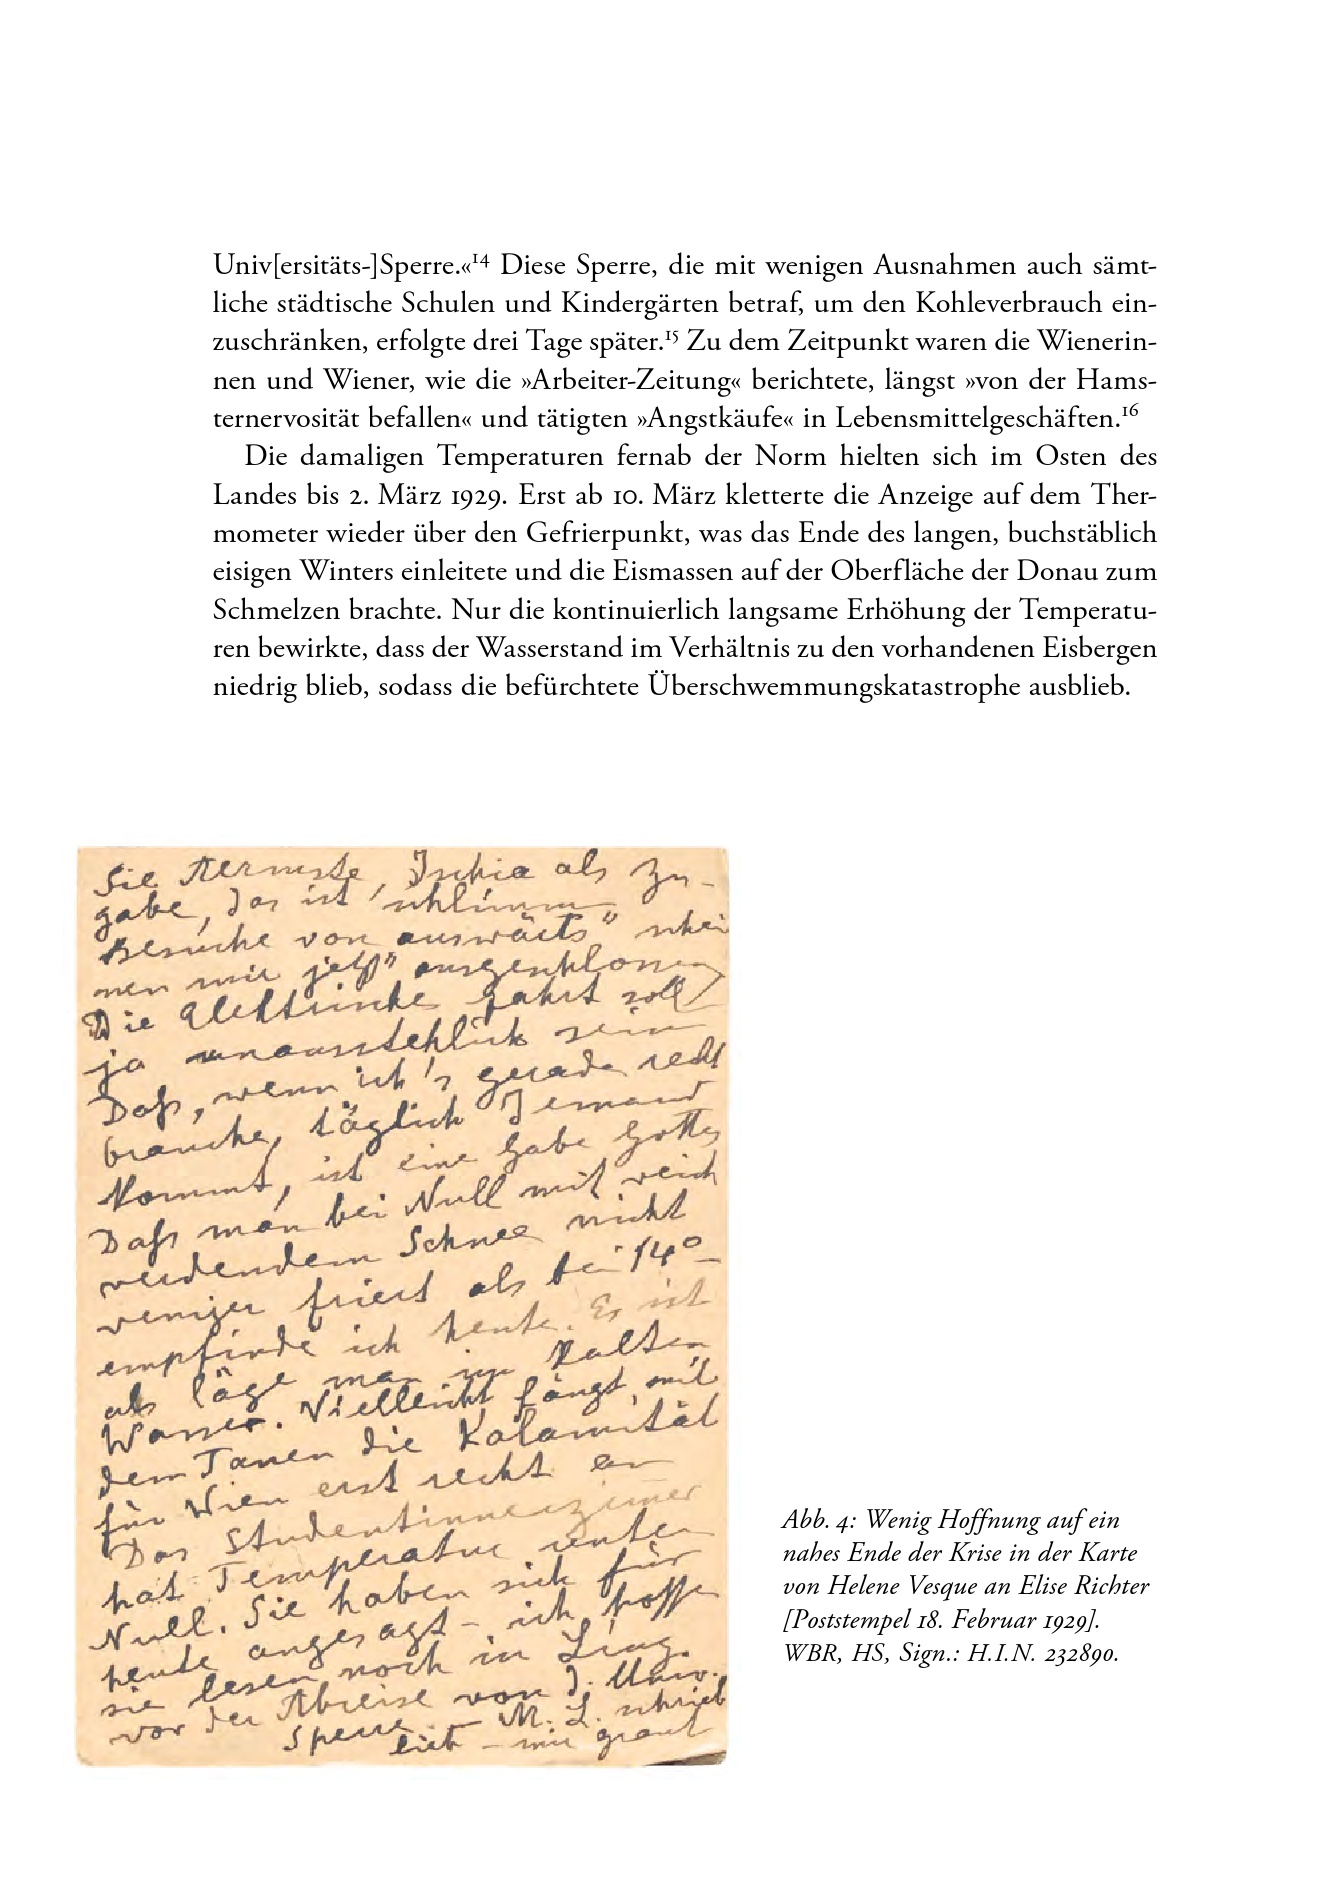 Univ[ersitäts-]Sperre.«¹⁴ Diese Sperre, die mit wenigen Ausnahmen auch sämt-
liche städtische Schulen und Kindergärten betraf, um den Kohleverbrauch ein-
zuschränken, erfolgte drei Tage später.¹⁵ Zu dem Zeitpunkt waren die Wienerin-
nen und Wiener, wie die »Arbeiter-Zeitung« berichtete, längst »von der Hams-
ternervosität befallen« und tätigten »Angstkäufe« in Lebensmittelgeschäften.¹⁶
Die damaligen Temperaturen fernab der Norm hielten sich im Osten des
Landes bis 2. März 1929. Erst ab 10. März kletterte die Anzeige auf dem Ther-
mometer wieder über den Gefrierpunkt, was das Ende des langen, buchstäblich
eisigen Winters einleitete und die Eismassen auf der Oberfläche der Donau zum
Schmelzen brachte. Nur die kontinuierlich langsame Erhöhung der Temperatu-
ren bewirkte, dass der Wasserstand im Verhältnis zu den vorhandenen Eisbergen
niedrig blieb, sodass die befürchtete Überschwemmungskatastrophe ausblieb.
Sie Aermste, Ischia als Zu-
gabe, das ist schlimm
Besuche von auswärts" schei
nen mir jetzt ausgeschlossen
Die Elektrische fahrt soll
ja unausstehlich sein
Daß, wenn ich's gerade recht
brauche, täglich Jemand
kommt, ist eine Gabe Gottes
Daß man bei Null mit weich
werdendem Schnee nicht
weniger friert als bei 14°
empfinde ich heute. Es ist
als läge man im kalten
Wasser. Vielleicht fängt mit
dem Tauen die Kalamität
für Wien erst recht an
Das Studentinnenzimmer
hat Temperatur unter
Null. Sie haben sich für
heute angesagt – ich hoffe
sie lesen noch in Ling.
vor der Abreise von d. Univ.
Sperre. – M. L. schrieb
lieb – mir graut
Abb. 4: Wenig Hoffnung auf ein
nahes Ende der Krise in der Karte
von Helene Vesque an Elise Richter
[Poststempel 18. Februar 1929].
WBR, HS, Sign.: H.I.N. 232890.